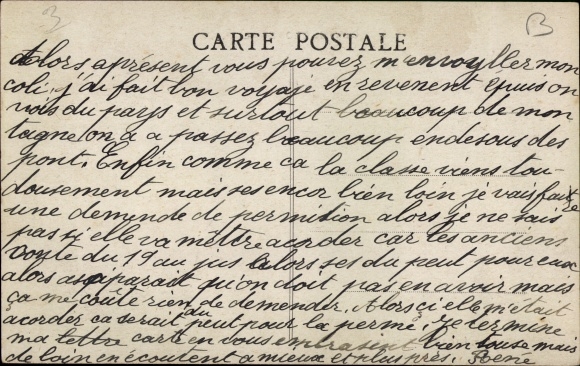 3
B
CARTE POSTALE
Alors aprésent vous pouvez m'envoyller mon
coli. j'ai fait bon voyaje en revenent épuis on
vois du pays et surtout beaucoup de mon
tagne on a a passez beaucoup endesous des
pont. Enfin comme ca la classe viens tou
dousement mais ses encor bien loin je vais faire
une demende de permition alors je ne sais
pas si elle va m'ettre acorder car les anciens
du 19 au jus alors ses du peut pour eux
alors qu'on doit pas en avoir mais
ça me coûte rien de demender. Alors ci elle m'était
acorder ca serait du peut pour la perme. Je termine
ma lettre carte en vous embrasent bien tousse mais
de loin en écoutent a mieux et plus près. René